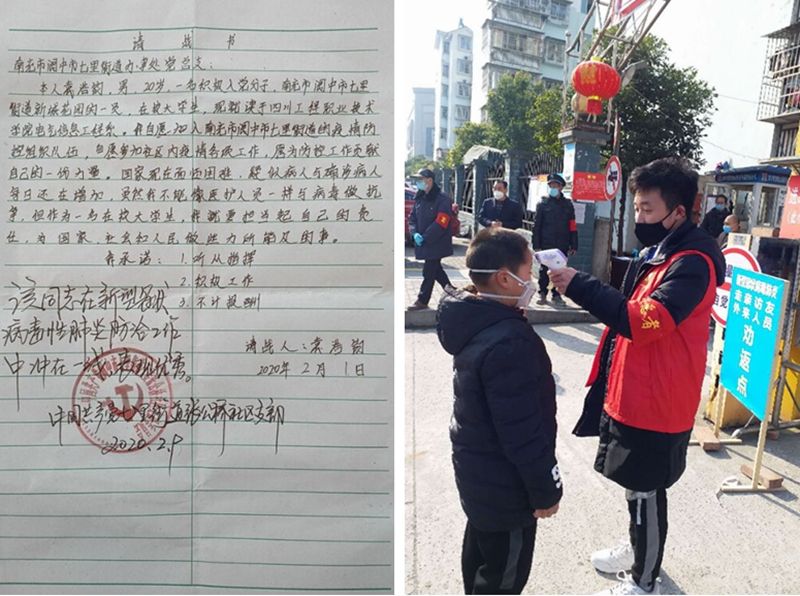 请战书
南充市阆中市七里街道办事处党总支:
本人袁浩钧 男 20岁 一名积极入党分子,南充市阆中市七里
街道新城花园的一员,在校大学生,现就读于四川工程职业技术
学院电气信息工程系。我自愿加入南充市阆中市七里街道的疫情防
控组织队伍,自愿参加社区内疫情各项工作,愿为防控工作贡献
自己的一份力量。国家现在面临困难,疑似病人与确诊病人
每日还在增加,虽然我不能像医护人员一样与病毒做抗
争,但作为一名在校大学生,我就要担当起自己的责
任,为国家、社会和人民做些力所能及的事。
我承诺:1.听从指挥
2.积极工作
3.不计报酬
请战人:袁浩钧
2020年2月1日
该同志在新型冠状
病毒性肺炎防治工作
中冲在一线,表现优秀。
中国共产党七里街道张公桥社区支部
2020.2.9
新型冠状病毒肺炎
走亲访友
外来人员
劝返点